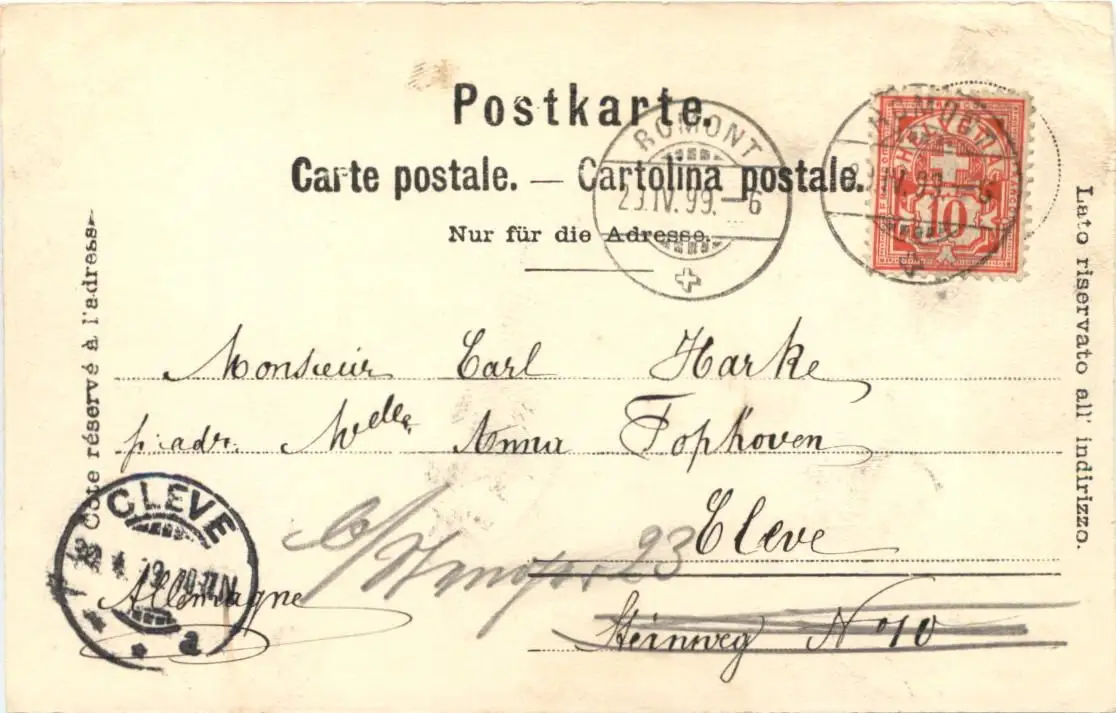 Postkarte.
Carte postale. — Cartolina postale.
Nur für die Adresse.
ROMONT
29.IV.99.—6
ROMONT
29.IV.99—6
HELVETIA
10
Côte réservé à l'adresse
Lato riservato all' indirizzo.
Monsieur Carl Harke
p. adr. Melle Anna Tophoven
Cleve
23
Allemagne
Steinweg No 10
CLEVE
a